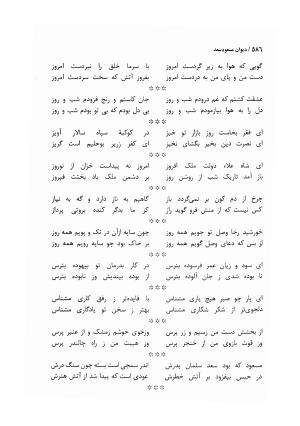 ۵۸۶ / دیوان مسعودسعد
گویی که هوا به زیر گردست امروز با سرما خلق را نبردست امروز
دست من و پای من به دردست امروز بفروز آتش که سخت سردست امروز
***
عشقت کشتم که غم درودم شب و روز جان کاستم و رنج فزودم شب و روز
دل را به هوا بیازمودم شب و روز بی دل بودم که بی تو بودم شب و روز
***
ای فقر بخاست روز بازار تو خیز در کوکبهٔ سپاه سالار آویز
ای نصرت دین بخیر بگشای نخیز ای کفر زیر بوحلیم است گریز
***
ای شاه علاء دولت ملک افروز امروز نه پیداست خزان از نوروز
باز آمد تاریک شب از روشن روز بر دشمن ملک باد بخشت فیروز
***
چرخ از دم کون بر نمی‌گردد باز گاهیم به ناز دارد و گه به نیاز
کس نیست که از منش فرو گوید راز کز ما بدگر کننده بروتی پرداز
***
خورشید رخا وصل تو جویم همه روز چون سایه ازآن در تک و پویم همه روز
از بس که دعای وصل گویم همه روز بر خاک بود چو سایه رویم همه روز
***
ای سود و زیان عمر فرسوده بترس در کار بدرمان تو بیهوده بترس
تا بوده شدی ز جان آلوده بترس از بوده بیندیش وز نابوده بترس
***
ای یار چو صبر هیچ یاری مشناس با فایده‌تر ز رفق کاری مشناس
دلجوی‌تر از شکر شکاری مشناس بهتر ز سخن تو یادگاری مشناس
***
از بخشش دست من رسیم و زر پرس وزخوی خوشم زمشک و از عنبر پرس
وز قوت بازوی من از خنجر پرس وز هیبت من ز راه جالندر پرس
***
مسعود که بود سعد سلمان پدرش اندر سمجی است بسته چون سنگ درش
در حبس بیفزود بر آتش خطرش عودی است که پیدا شد از آتش هنرش
***